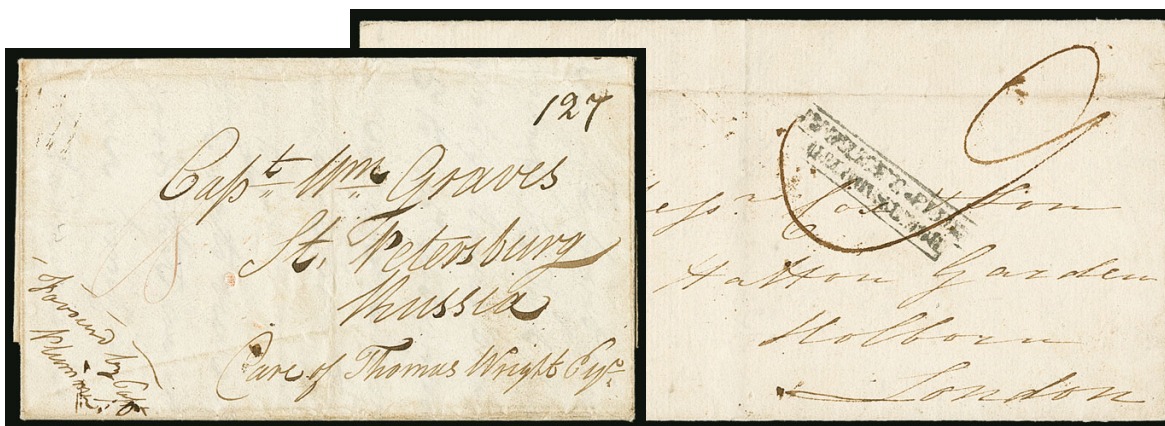 127
Capt Wm Graves
St. Petersburg
Russia
Care of Thomas Wright Esqr.
Favoured by Capt
9
Hatton Garden
Holborn
London